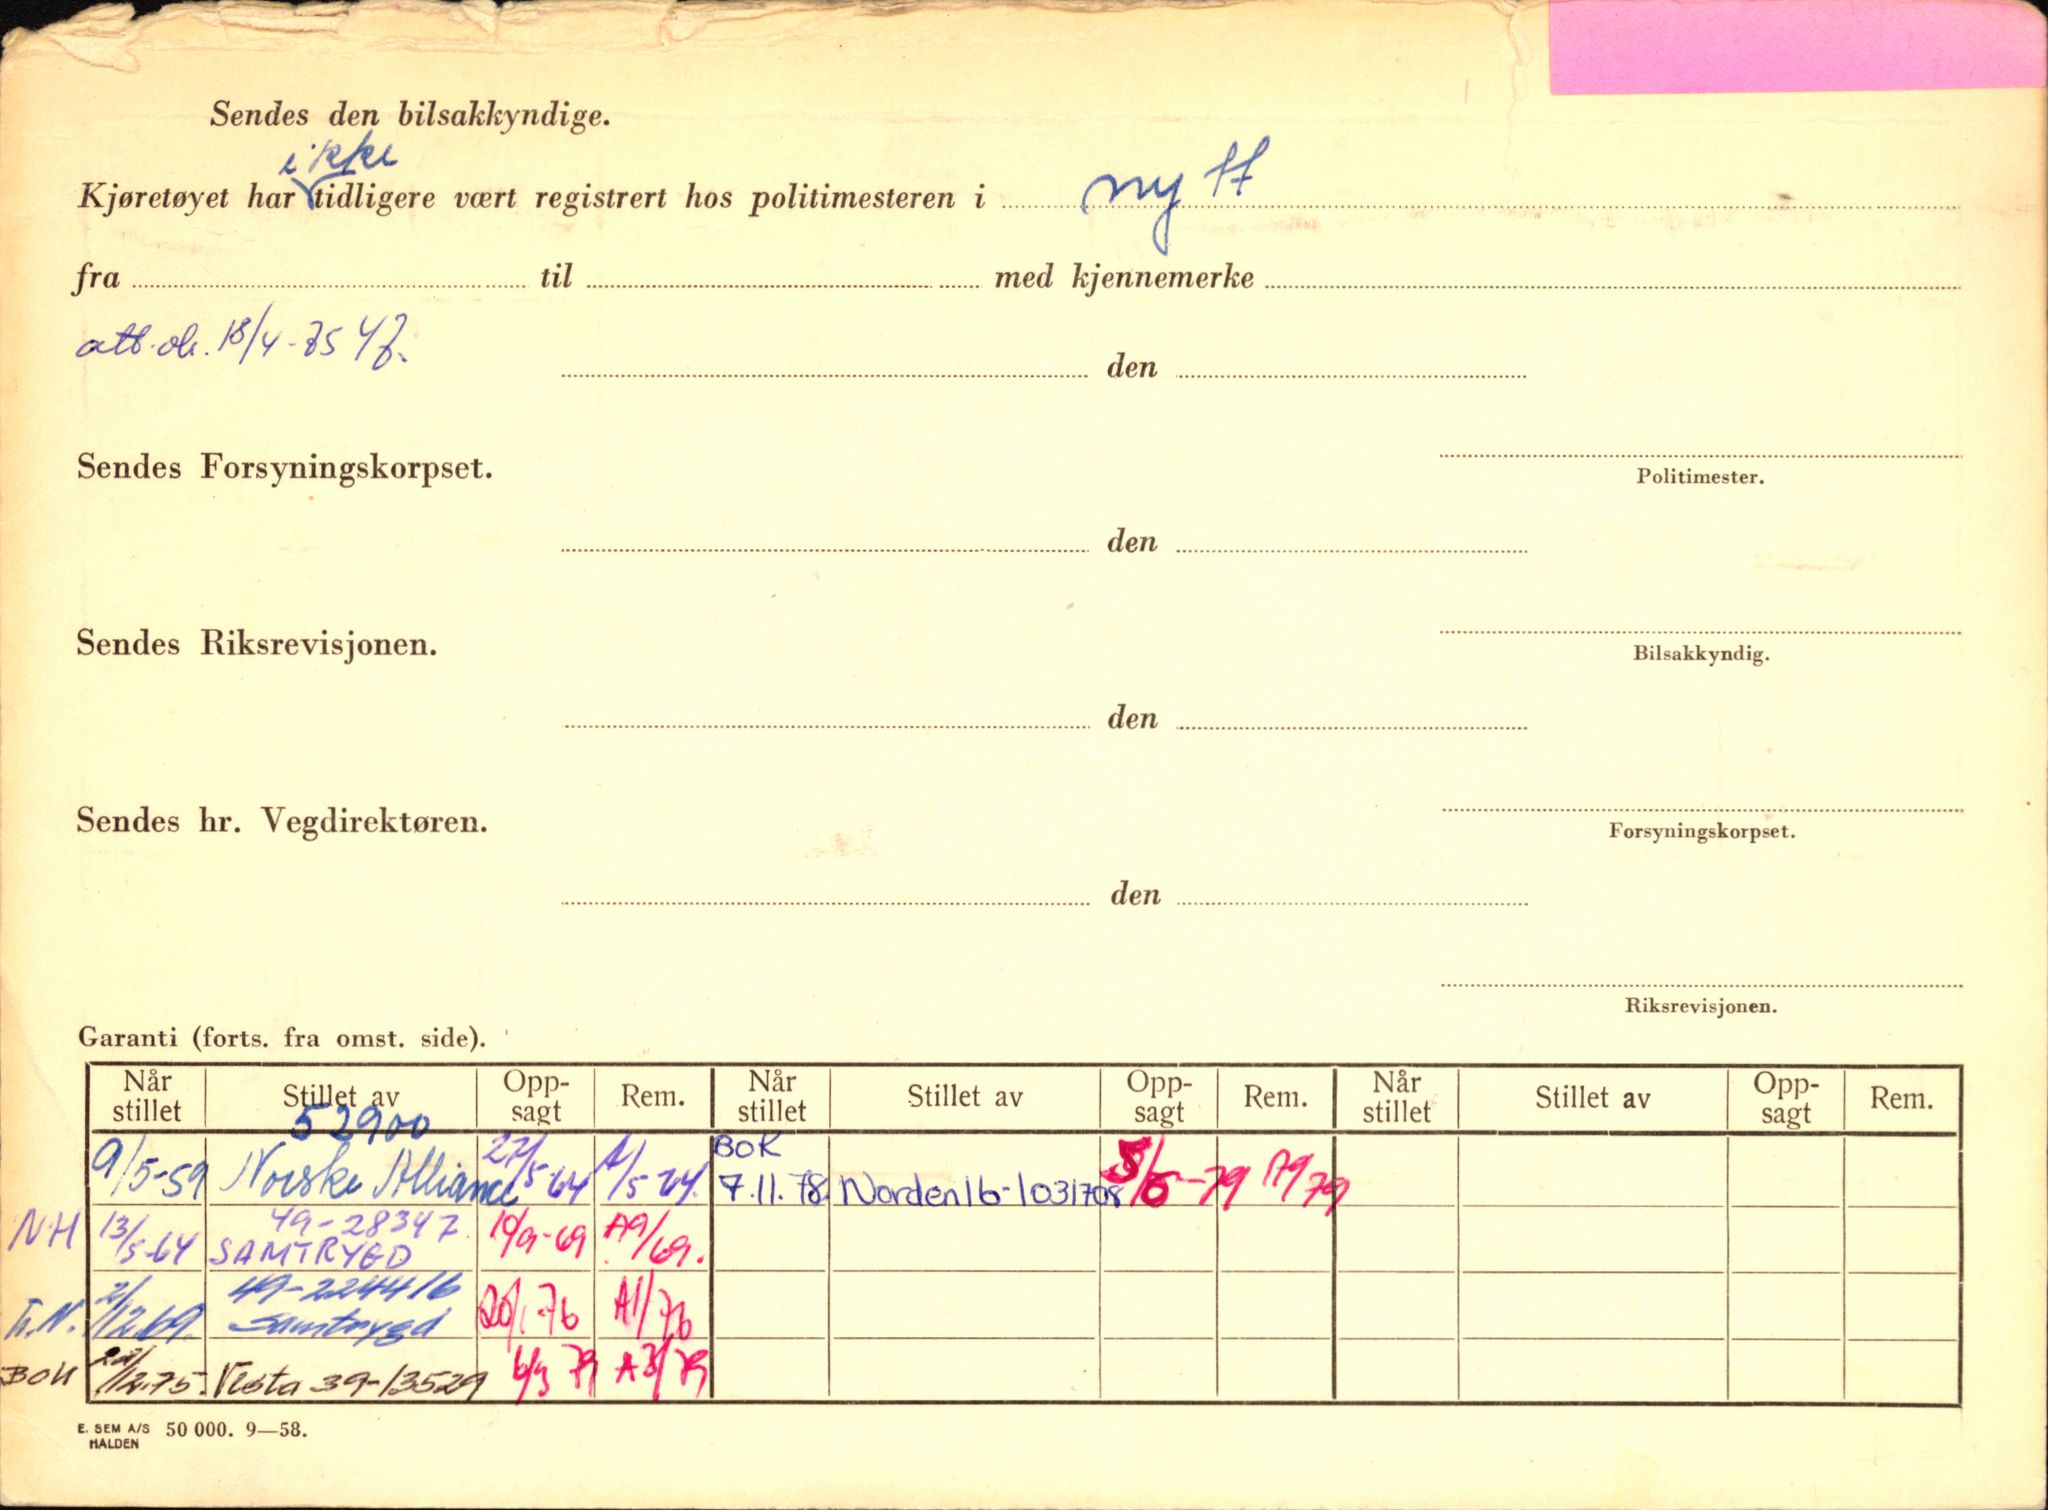 Sendes den bilsakkyndige.
ikke
Kjøretøyet har tidligere vært registrert hos politimesteren i ny
fra til med kjennemerke
18/4-75
den
Sendes Forsyningskorpset.
Politimester.
den
Sendes Riksrevisjonen.
Bilsakkyndig.
den
Sendes hr. Vegdirektøren.
Forsyningskorpset.
den
Riksrevisjonen.
Garanti (forts. fra omst. side).
Når stillet Stillet av Opp-sagt Rem. Når stillet Stillet av Opp-sagt Rem. Når stillet Stillet av Opp-sagt Rem.
52900
9/5-59 Norske Alliance 27/5-64 A/5-64. BOK 7.11.78 Norden 16-1031708 5/6-79 A9/79
NH 13/5-64 49-28347 SAMTRYGD 10/9-69 A9/69.
T.N. 2/12.69. 49-2244/6 Samtrygd 20/1-76 A1/76
BOK 22/12.75. Vesta 39-13529 6/3 79 A3/79
E. SEM A/S HALDEN 50 000. 9—58.